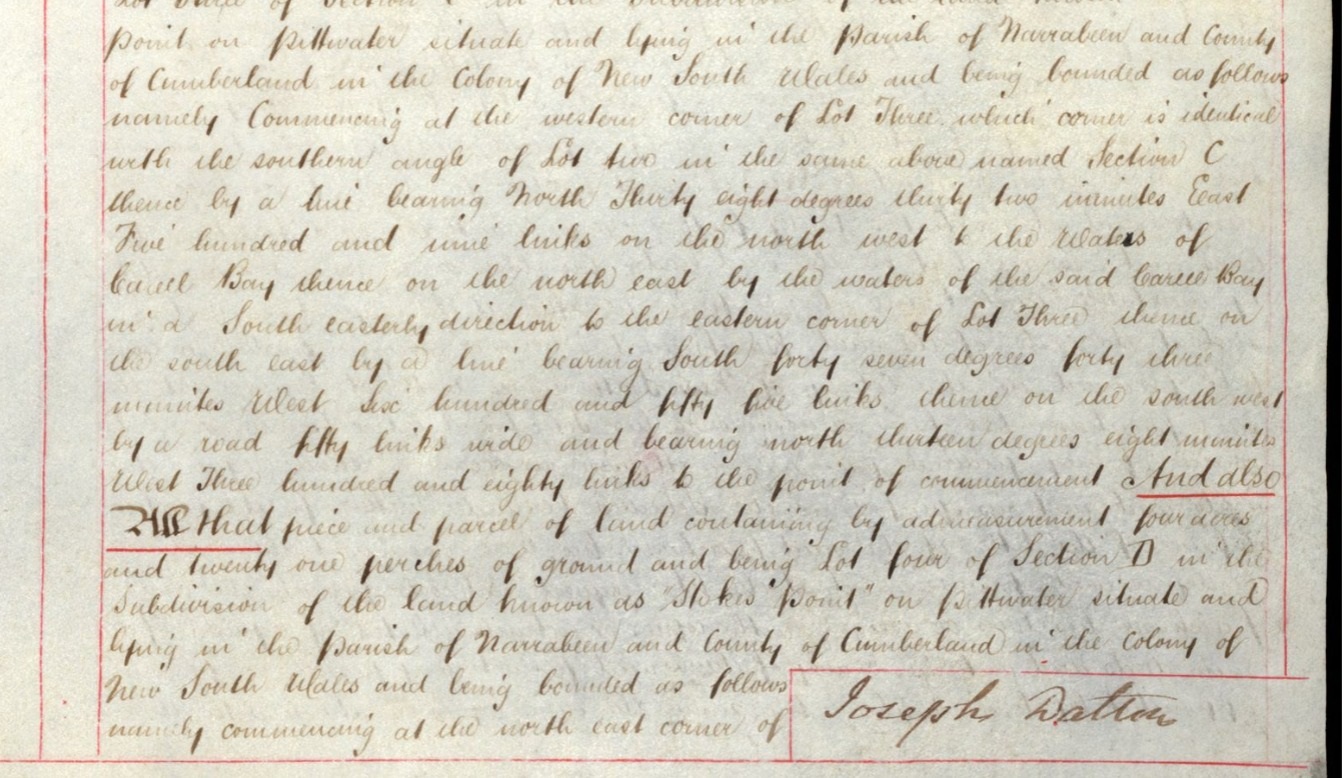 Lot Three of Section C in the Subdivision of the land known
point on Pittwater situate and lying in the Parish of Narrabeen and County
of Cumberland in the Colony of New South Wales and being bounded as follows
namely Commencing at the western corner of Lot Three which corner is identical
with the southern angle of Lot two in the same above named Section C
thence by a line bearing North Thirty eight degrees thirty two minutes East
Five hundred and nine links on the north west to the Waters of
Careel Bay thence on the north east by the waters of the said Careel Bay
in a South easterly direction to the eastern corner of Lot Three thence on
the south east by a line bearing South forty seven degrees forty three
minutes West Six hundred and fifty five links thence on the south west
by a road fifty links wide and bearing north thirteen degrees eight minutes
West Three hundred and eighty links to the point of commencement And also
All that piece and parcel of land containing by admeasurement four acres
and twenty one perches of ground and being Lot four of Section D in the
Subdivision of the land known as "Stokes Point" on Pittwater situate and
lying in the Parish of Narrabeen and County of Cumberland in the Colony of
New South Wales and being bounded as follows
namely commencing at the north east corner of
Joseph Dalton